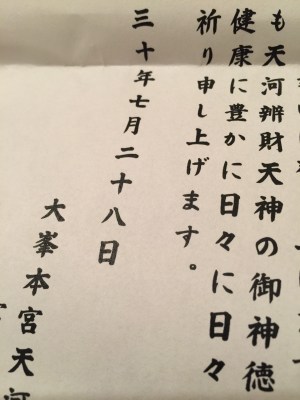 も天河辨財天神の御神徳
健康に豊かに日々に日々
祈り申し上げます。
三十年七月二十八日
大峯本宮天河